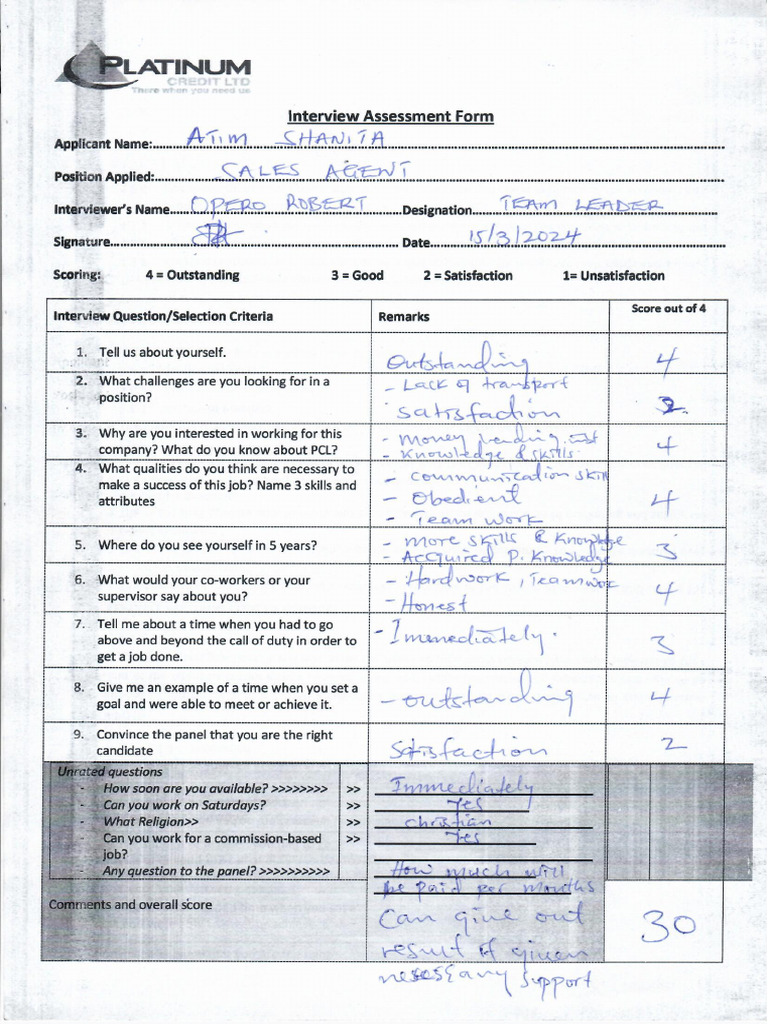 PLATINUM
CREDIT LTD
There when you need us
Interview Assessment Form
Applicant Name: ATIM SHANITA
Position Applied: SALES AGENT
Interviewer's Name OPERO ROBERT Designation TEAM LEADER
Signature Date 15/3/2024
Scoring: 4 = Outstanding 3 = Good 2 = Satisfaction 1= Unsatisfaction
Interview Question/Selection Criteria Remarks Score out of 4
1. Tell us about yourself. Outstanding 4
2. What challenges are you looking for in a - Lack of transport
position? Satisfaction 2
3. Why are you interested in working for this - Money lending inst
company? What do you know about PCL? - Knowledge & skills 4
4. What qualities do you think are necessary to - communication skill
make a success of this job? Name 3 skills and - Obedient 4
attributes - Team work
5. Where do you see yourself in 5 years? - More skills & Knowledge
- Acquired P. Knowledge 3
6. What would your co-workers or your - Hardwork, Teamwork
supervisor say about you? - Honest 4
7. Tell me about a time when you had to go - Immediately.
above and beyond the call of duty in order to 3
get a job done.
8. Give me an example of a time when you set a - outstanding 4
goal and were able to meet or achieve it.
9. Convince the panel that you are the right Satisfaction 2
candidate
Unrated questions
- How soon are you available? >>>>>>>> >> Immediately
- Can you work on Saturdays? >> Yes
- What Religion>> >> christian
- Can you work for a commission-based >> Yes
job?
- Any question to the panel? >>>>>>>>>> How much will
be paid per months
Comments and overall score Can give out 30
result if given
necessary support